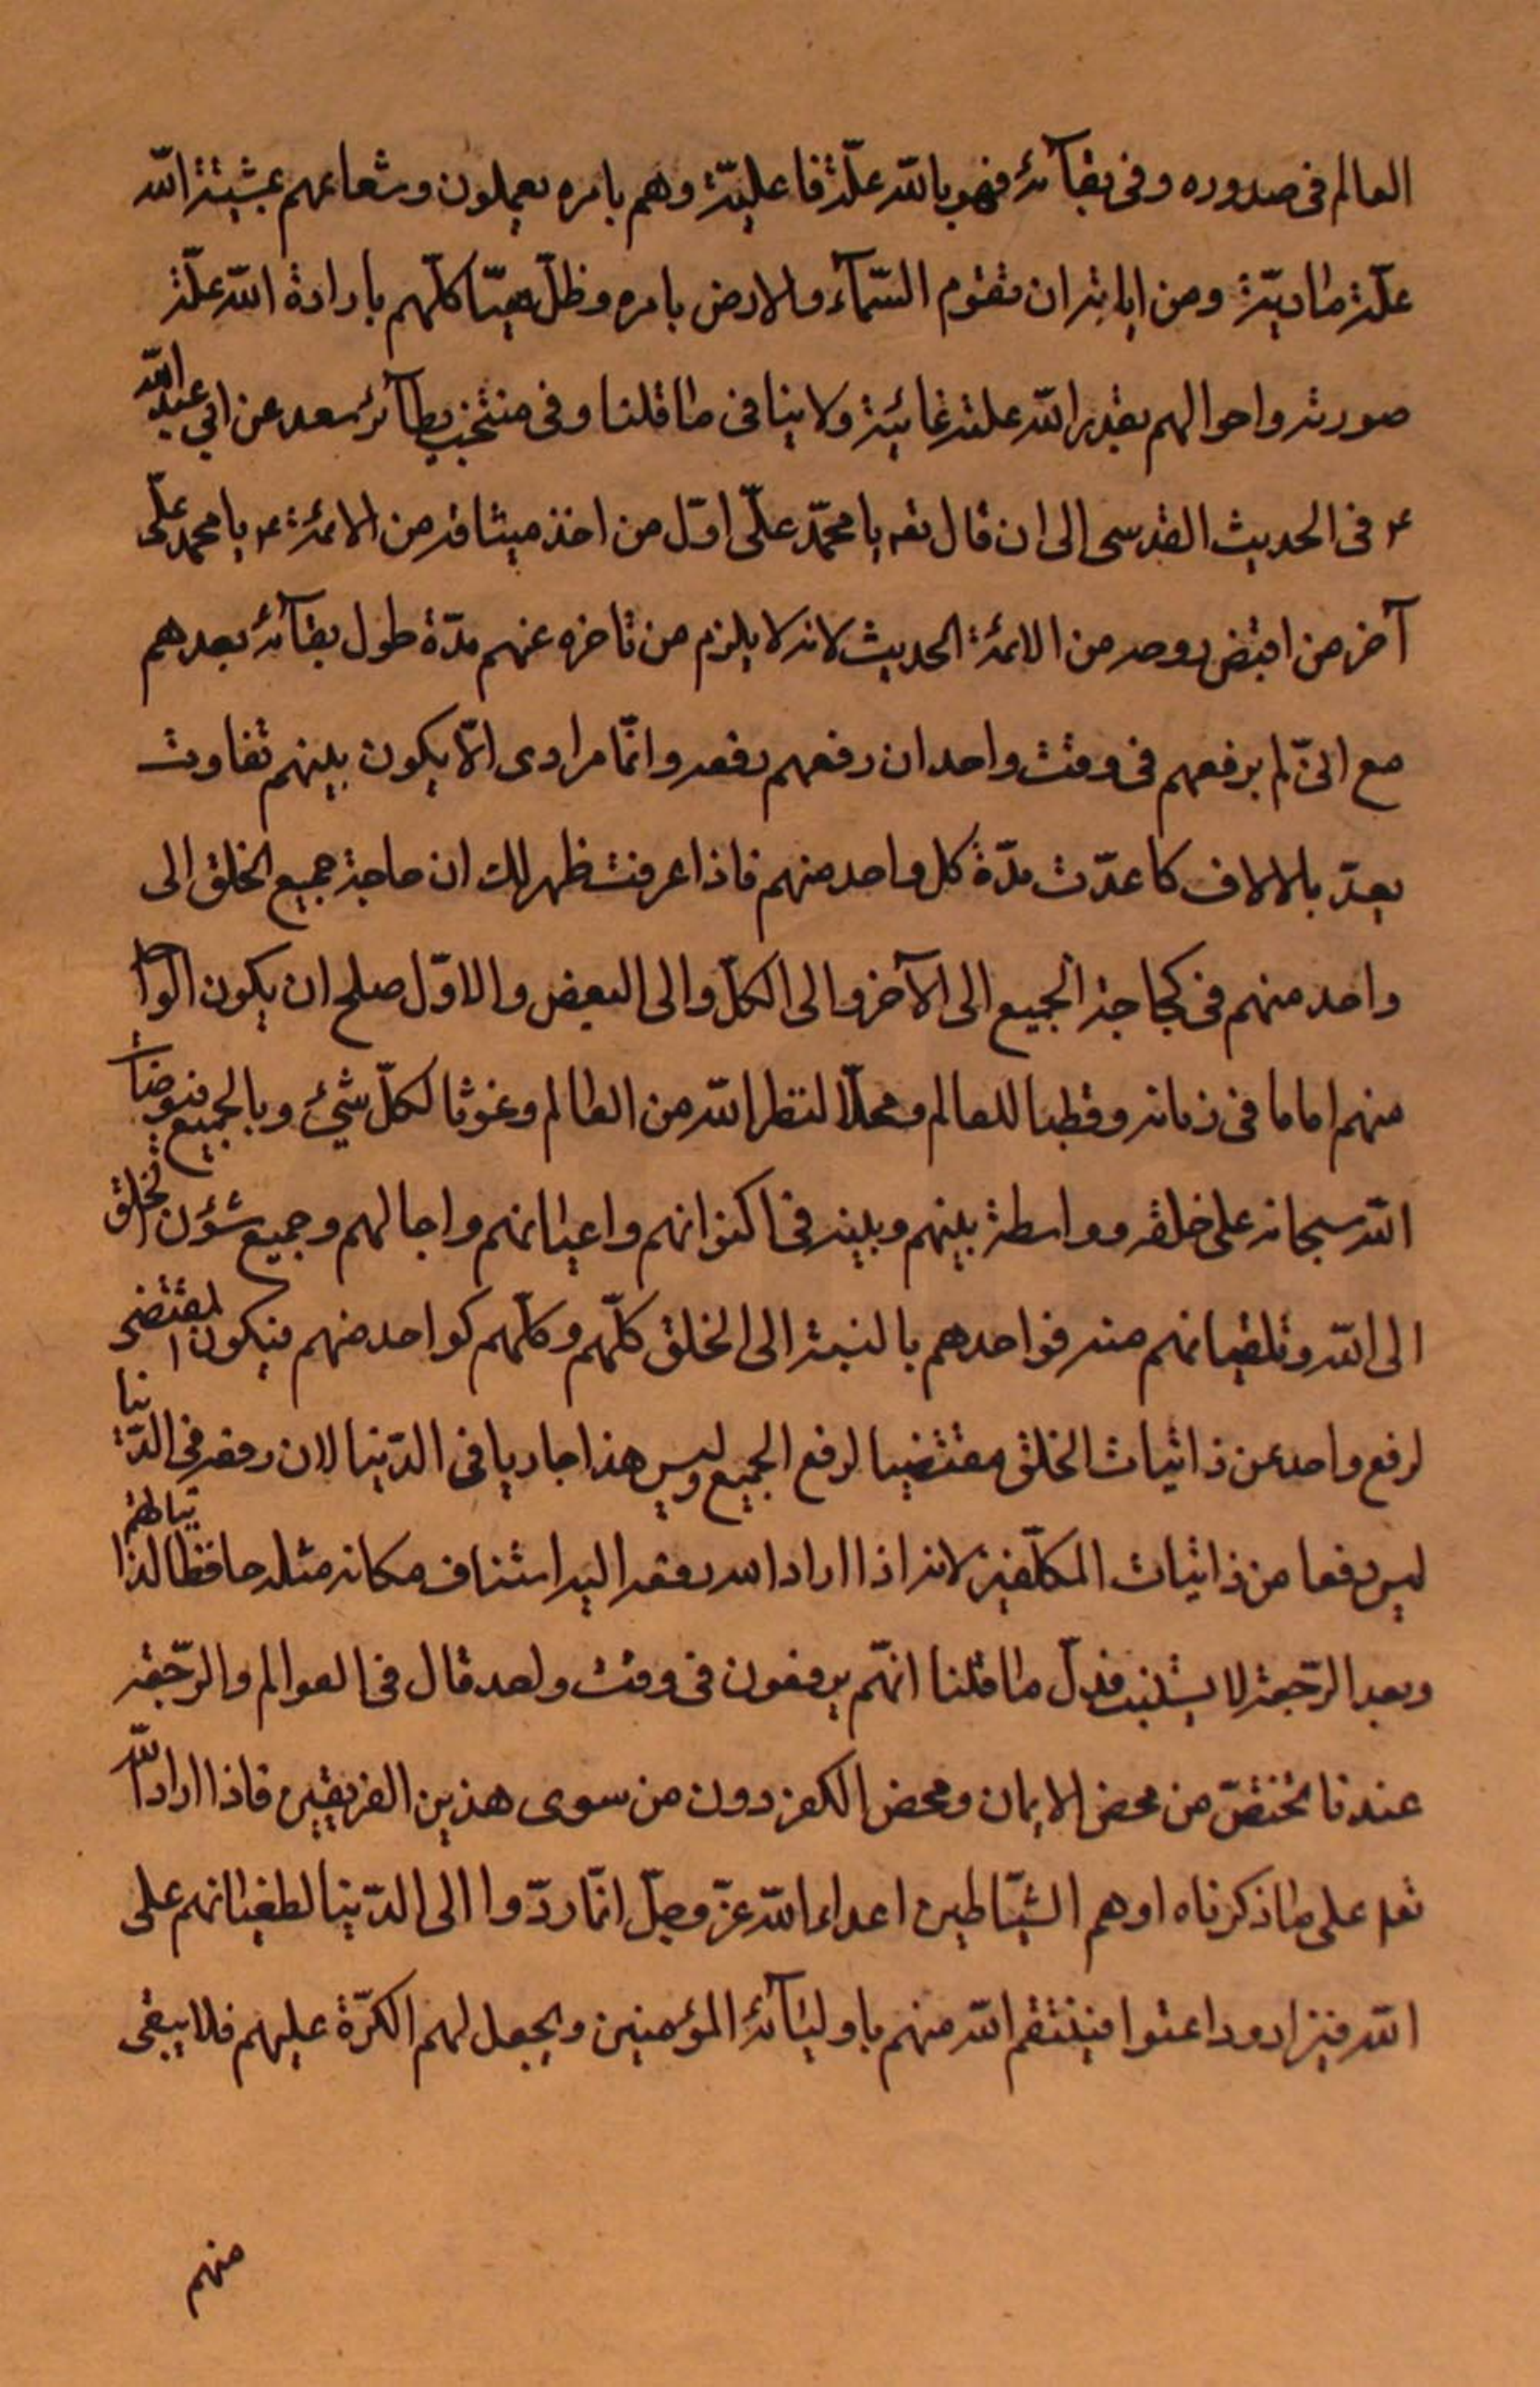 العالم فى صدوره وفى بقآئه فهو بالله علّة فاعليّة وهم بامره يعملون وشعاعهم بمشيّة الله
علّة ماديّة ومن اياته ان تقوم السّمآء والارض بامره وظلّ هيئا كلّهم بارادة الله علّة
صورته واحوالهم بقدر الله علته غائية ولا ينافى ما قلنا وفى منتخب بصآئر سعد عن ابي عبد الله
ع فى الحديث القدسى الى ان قال تعه يا محمّد علىّ اوّل من اخذ ميثاقه من الائمة ع يا محمد علىّ
آخر من اقبض روحه من الائمة الحديث لانه لا يلزم من تاخره عنهم مدّة طول بقآئه بعدهم
مع الىّ لم يرفعهم فى وقت واحد ان رفعهم رفعه وانّما مرادى الّا يكون بينهم تفاوت
يعدّ بالالاف كما عدّت مدّة كل واحد منهم فاذا عرفت ظهر لك ان حاجة جميع الخلق الى
واحد منهم فى كحاجة الجميع الى الآخر والى الكلّ والى البعض والاوّل صلح ان يكون الوا
منهم اماما فى زمانه وقطبا للعالم ومحلّا لنظر الله من العالم وغوثا لكلّ شيئ وبالجميع فيوضات
الله سبحانه على خلقه وواسطة بينهم وبينه فى اكوانهم واعيانهم واجالهم وجميع شؤن الخلق
الى الله وتلقياتهم منه فواحدهم بالنسبة الى الخلق كلّهم وكلّهم كواحد منهم فيكون المقتضى
لرفع واحد عن ذاتيات الخلق مقتضيا لرفع الجميع وليس هذا جاريا فى الدّنيا لان رفعه فى الدّنيا
ليس رفعا من ذاتيات المكلّفين لانه اذا اراد الله رفعه اليه استناف مكانه مثله حافظا لذاتياتهم
وبعد الرّجعة لا يستنيب فدلّ ما قلنا انهّم يرفعون فى وقت واحد قال فى العوالم والرّجعة
عندنا تختصّ من محض الايمان ومحض الكفر دون من سوى هذين الفريقين فاذا اراد الله
تعه على ما ذكرناه اوهم الشيّاطين اعداء الله عزّ وجلّ انمّا ردّوا الى الدّنيا لطغيانهم على
الله فيزادودا عتوا فينتقم الله منهم باوليآئه المؤمنين ويجعل لهم الكرّة عليهم فلا يبقى
منهم